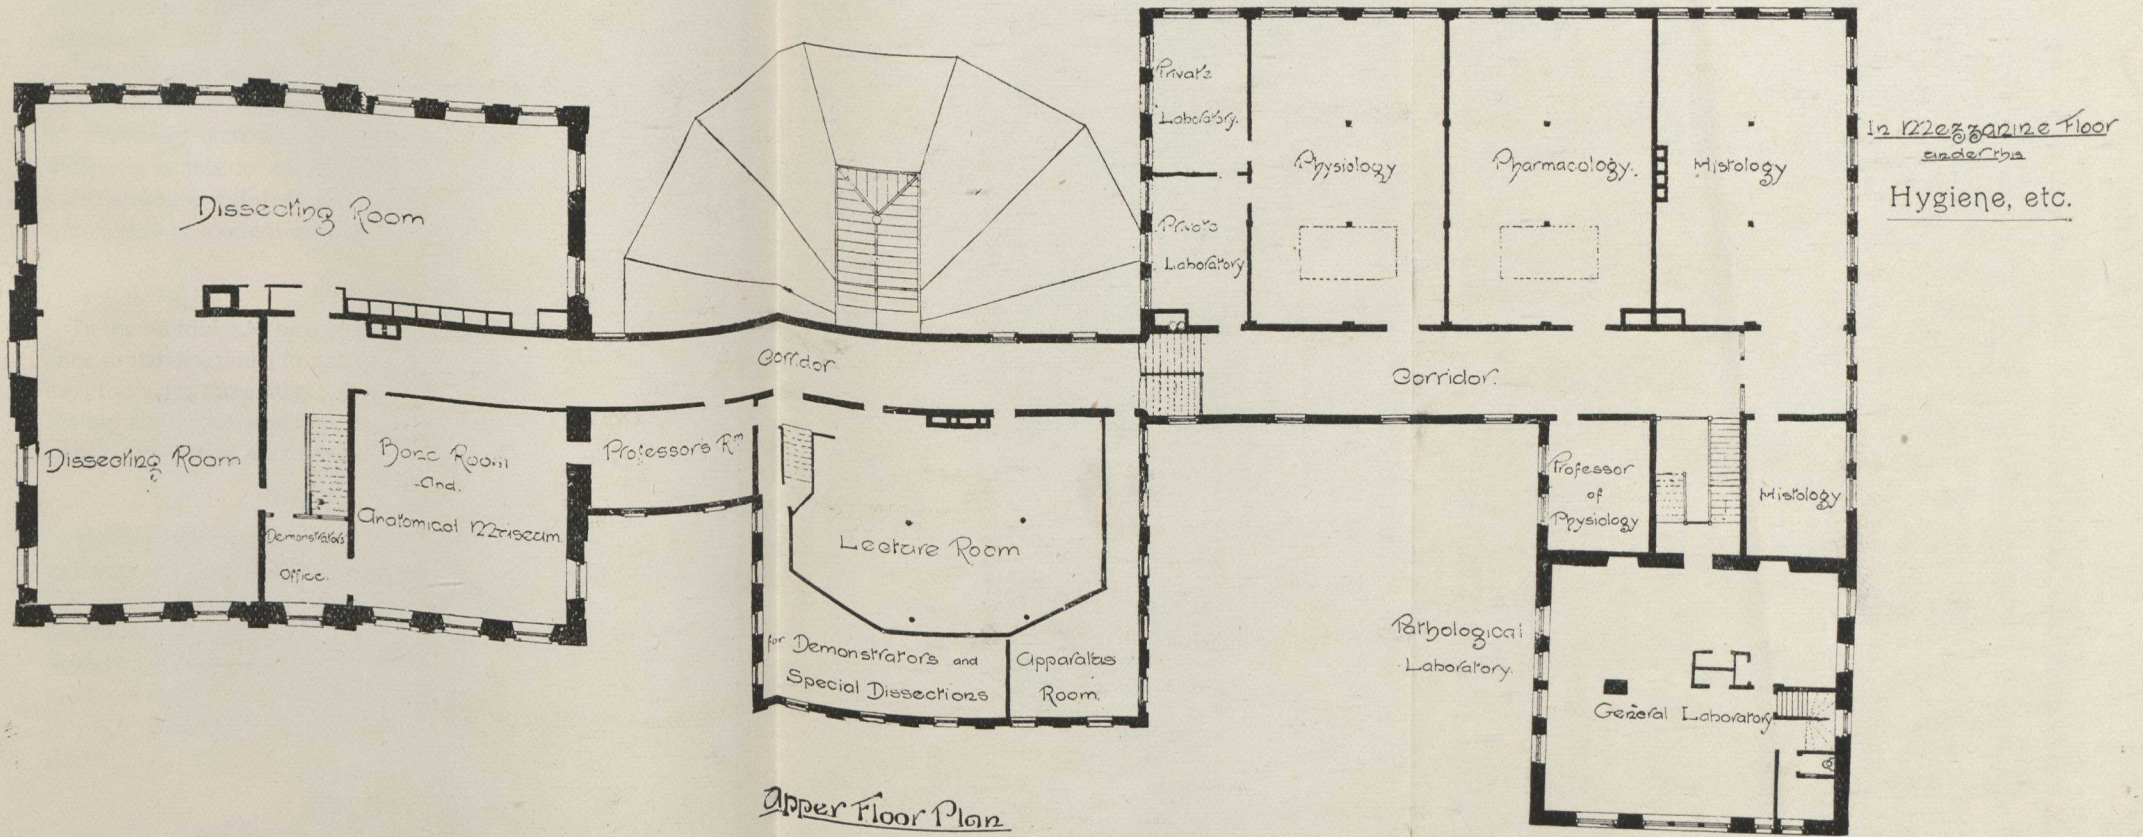 Dissecting Room
Dissecting Room
Demonstrators
Office.
Bone Room
And.
Anatomical Museum.
Corridor
Professor's Rm
Lecture Room
for Demonstrators and
Special Dissections
Apparatus
Room.
Private
Laboratory.
Private
Laboratory
Physiology
Pharmacology.
Histology
In Mezzanine Floor
under this
Hygiene, etc.
Corridor.
Professor
of
Physiology
Histology
Pathological
Laboratory.
General Laboratory.
Upper Floor Plan